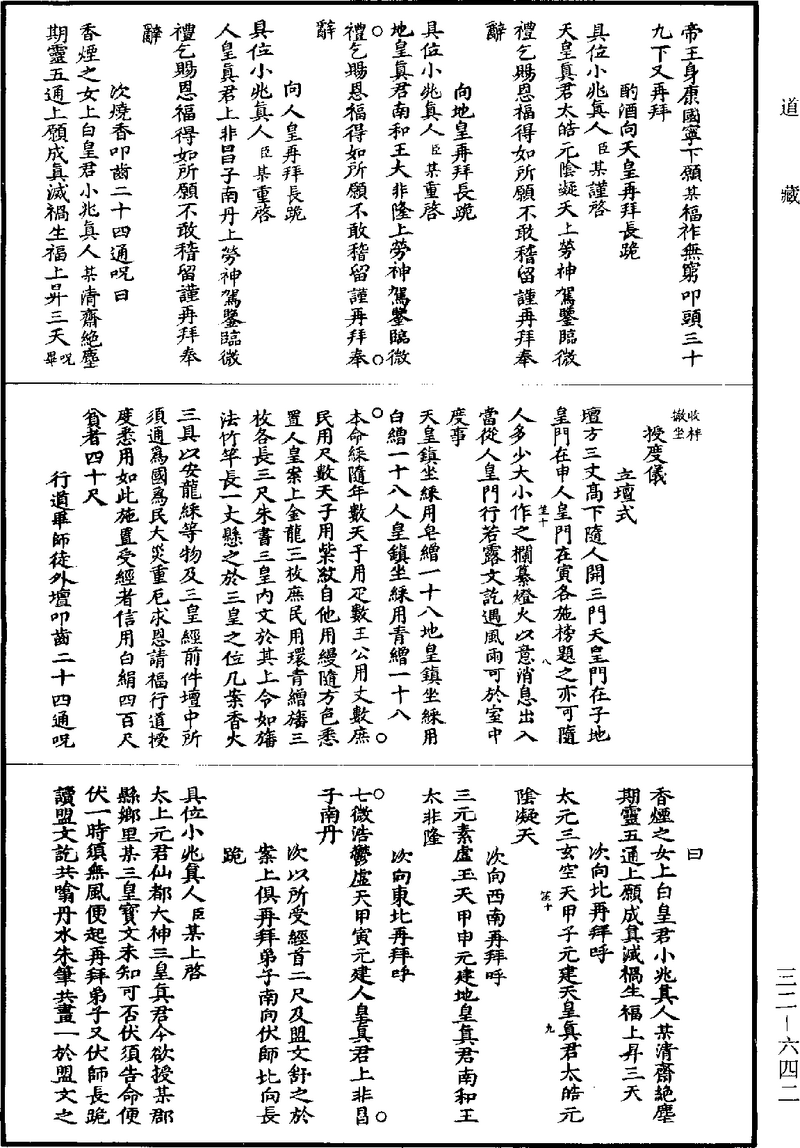 道藏
帝王身康國寧下願某福祚無窮叩頭三十
九下又再拜
酌酒向天皇再拜長跪
具位小兆真人臣某謹啓
天皇真君太皓元陰凝天上勞神駕鑒臨微
禮乞賜恩福得如所願不敢稽留謹再拜奉
辭
向地皇再拜長跪
具位小兆真人臣某重啓
地皇真君南和王大非隆上勞神駕鑒臨微
禮乞賜恩福得如所願不敢稽留謹再拜奉
辭
向人皇再拜長跪
具位小兆真人臣某重啓
人皇真君上非昌子南丹上勞神駕鑒臨微
禮乞賜恩福得如所願不敢稽留謹再拜奉
辭
次燒香叩齒二十四通呪曰
香煙之女上白皇君小兆真人某清齋絶塵
期靈五通上願成真滅禍生福上昇三天呪畢
收坐
授度儀
立壇式
壇方三丈高下隨人開三門天皇門在子地
皇門在申人皇門在寅各施榜題之亦可隨
人多少大小作之攔纂燈火以意消息出入
笙十 八
當從人皇門行若露文訖遇風雨可於室中
度事
天皇鎮坐綵用皂繒一十八地皇鎮坐綵用
白繒一十八人皇鎮坐綵用青繒一十八
本命綵隨年數天子用疋數王公用丈數庶
民用尺數天子用紫紋自他用縵隨方色悉
置人皇案上金龍三枚庶民用環青繒旛三
枚各長三尺朱書三皇內文於其上令如旛
法竹竿長一丈懸之於三皇之位几案香火
三具以安龍綵等物及三皇經前件壇中所
須通爲國爲民大災重厄求恩請福行道授
度悉用如此施置受經者信用白絹四百尺
貧者四十尺
行道畢師徒外壇叩齒二十四通呪
曰
香煙之女上白皇君小兆真人某清齋絶塵
期靈五通上願成真滅禍生福上昇三天
次向北再拜呼
太元三玄空天甲子元建天皇真君太皓元
九
陰凝天
次向西南再拜呼
三元素虛玉天甲申元建地皇真君南和王
太非隆
次向東北再拜呼
七微浩鬱虛天甲寅元建人皇真君上非昌
子南丹
次以所受經首二尺及盟文舒之於
案上俱再拜弟子南向伏師北向長
跪
具位小兆真人臣某上啓
太上元君仙都大神三皇真君今欲授某郡
縣鄉里某三皇寶文未知可否伏須告命便
伏一時須無風便起再拜弟子又伏師長跪
讀盟文訖共噏丹水朱筆共畫一於盟文之
三二－六四二